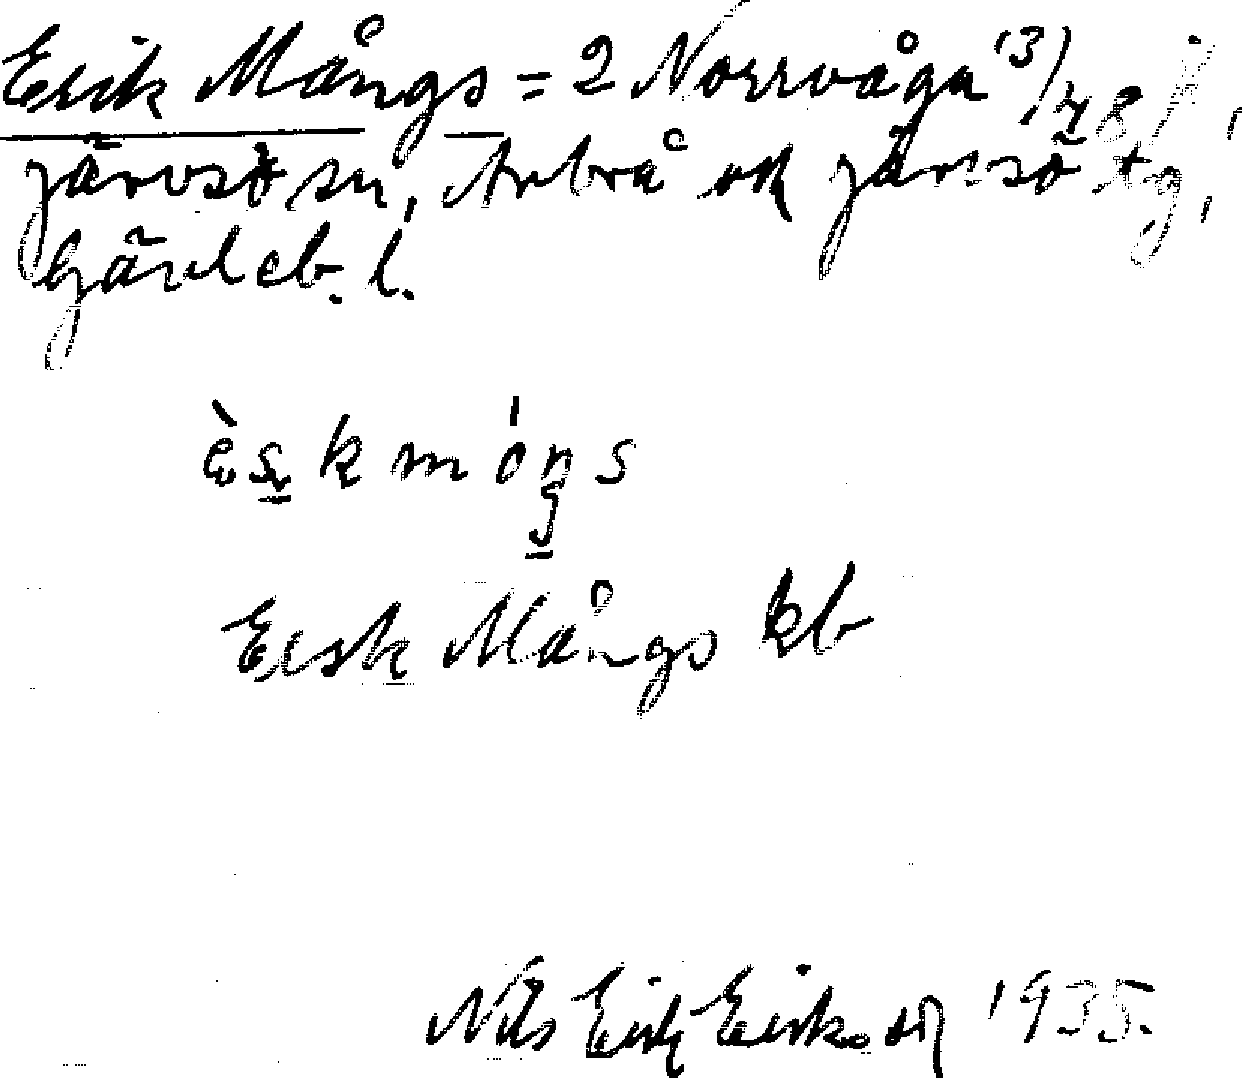 Erik Mångs = 2 Norrvåga 13/48,
Järvsö sn, Arbrå och Järvsö tg,
Gävleb. l.
èskmóŋs
Eisk Mångs kb
Nils Erik Eriksson 1935.